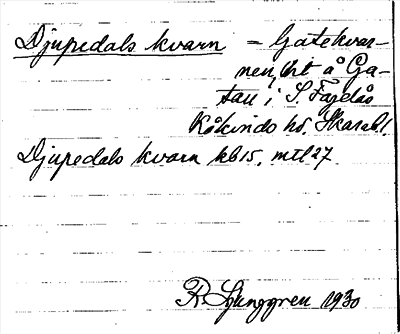 Djupedals kvarn = Gatekvar-
nen, bit å Ga-
tan i S. Fågelås
Kåkinds hd, Skarabl.
Djupedals kvarn kb 15, mtl 27.
R. Ljunggren 1930